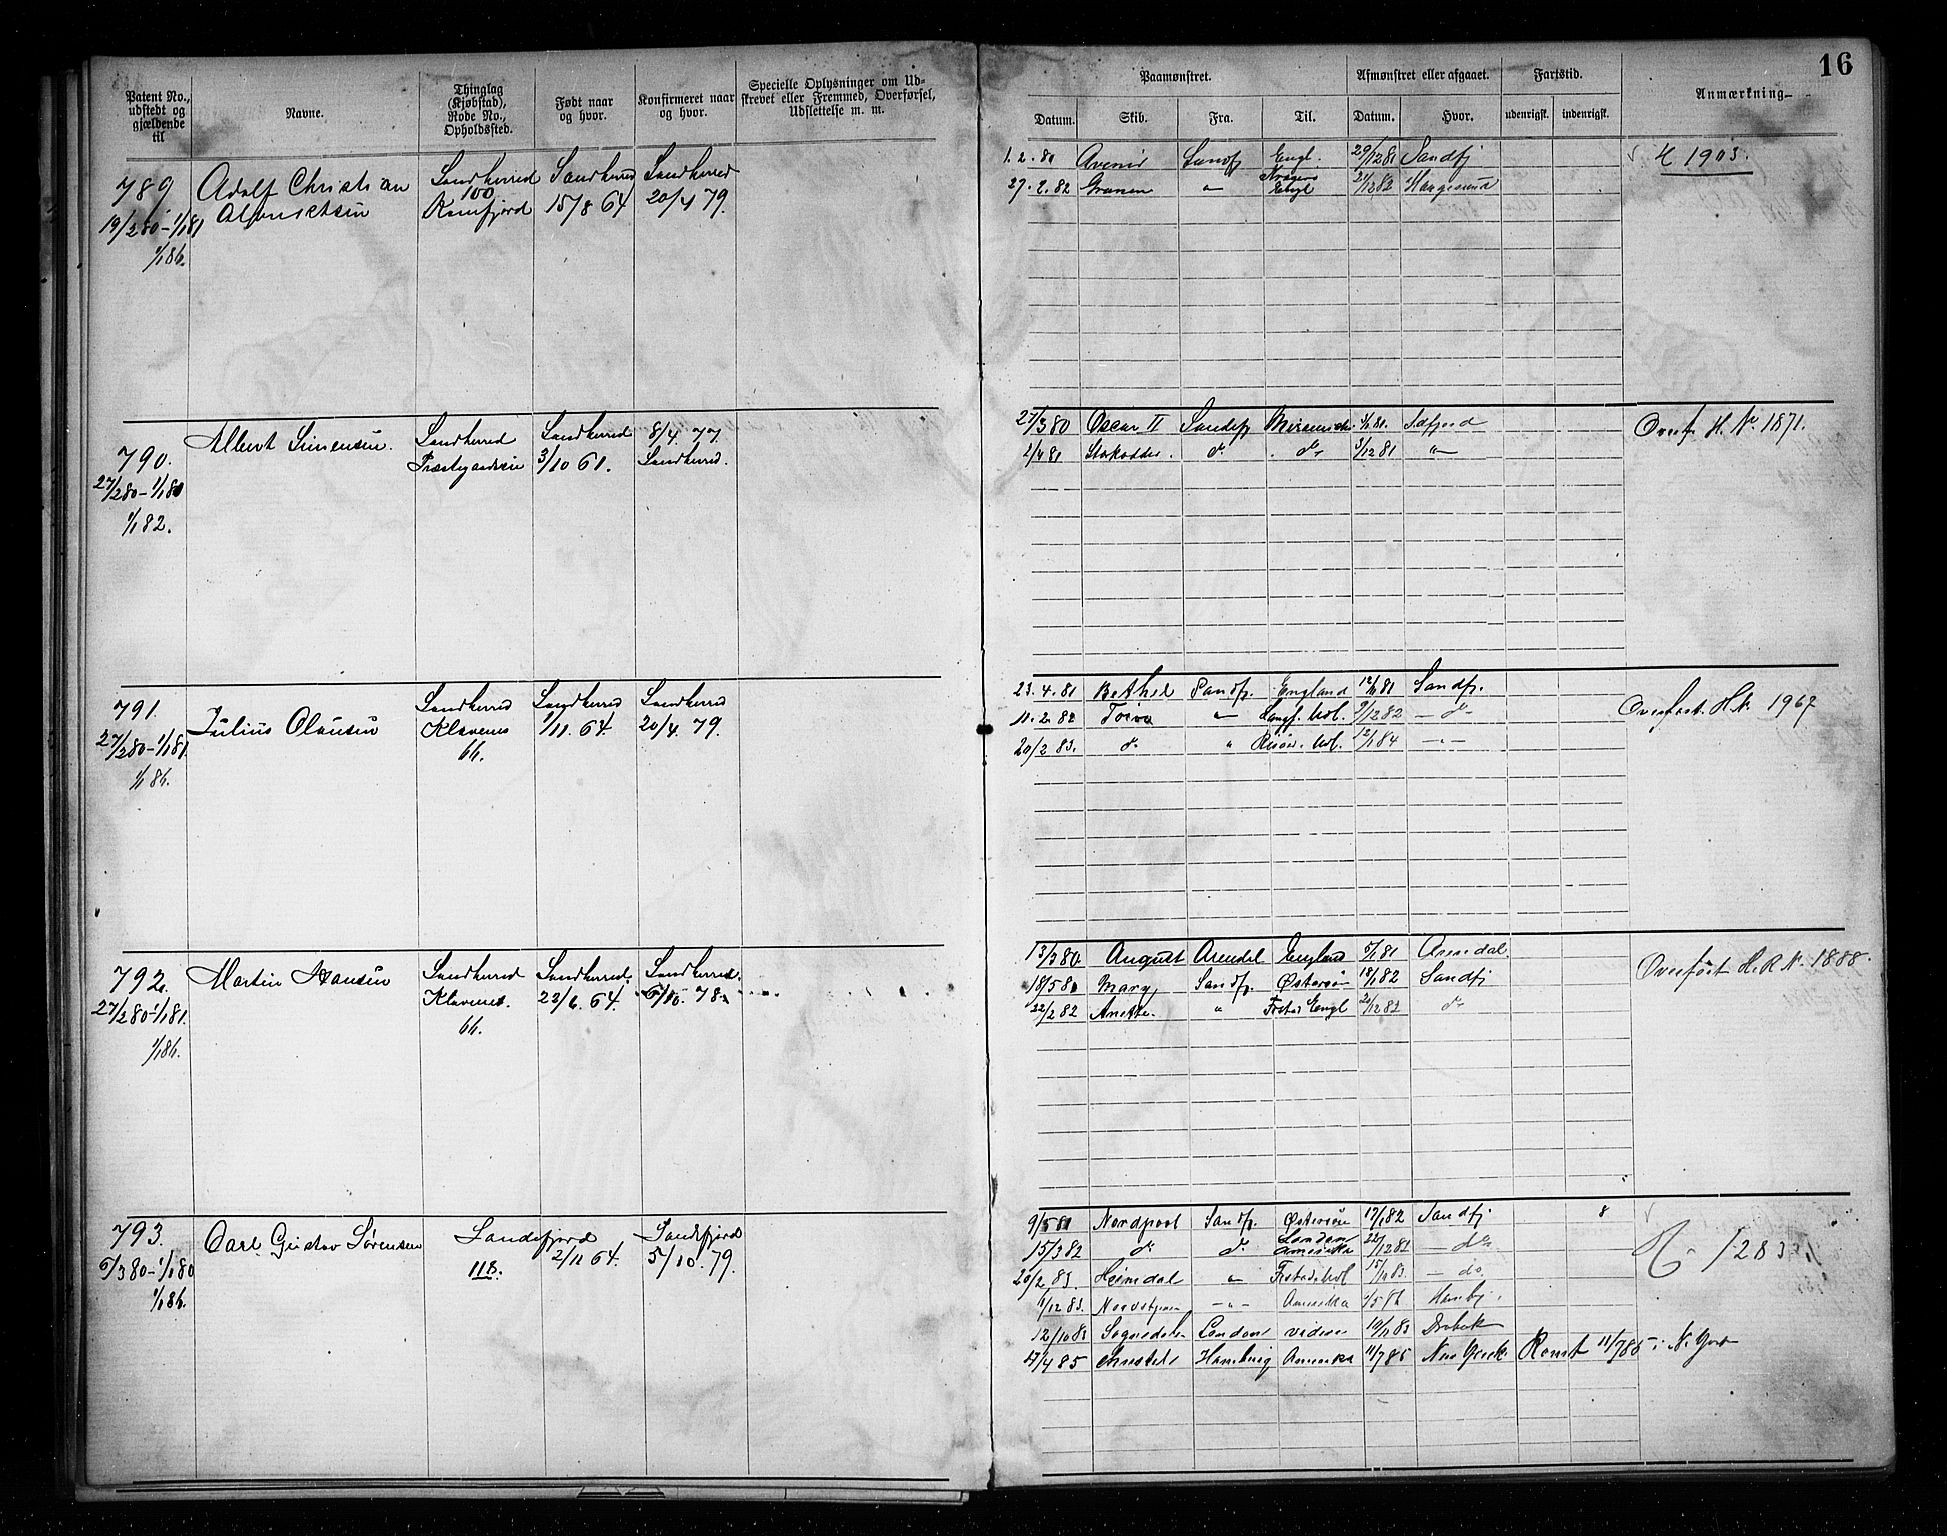 16
Patent No., udstedt og gjældende til
Navne.
Thinglag (Kjøbstad), Rode No., Opholdssted.
Født naar og hvor.
Konfirmeret naar og hvor.
Specielle Oplysninger om Udskrevet eller Fremmed, Overførsel, Udslettelse m. m.
Paamønstret.
Afmønstret eller afgaaet.
Fartstid.
Anmærkning
Datum.
Skib.
Fra.
Til.
Datum.
Hvor.
udenrigsk.
indenrigsk.
789 Adolf Christian Sandherred Sandherred Sandherred
100
15/8 64 20/4 79.
19/2 80 - 1/1 81
1/1 86.
1.2.80 Sandfj Engl. 29/12 81 Sandfj
1903.
27.2.82 Granen " Engl 21/12 82 Haugesund
790. Albert Simensen. Sandherred Sandherred 8/4. 77.
3/10 61. Sandherred.
27/2 80 - 1/1 80
1/1 82.
27/3 80 Oscar II Sandefj
Overf. H. Nr 1871.
2/4 81 do do 3/12 81 "
791. Julius Olausen Sandherred Sandherred Sandherred
Klavenes 1/11. 64 20/4 79.
66.
27/2 80 - 1/1 81.
1/1 86.
23.4.81 Bethel Sandfj. England Sandfj.
Overført. H. N. 1967
11.2.82 Toivo " 9/12 82 do
20/2 83. do " 12/1 84 "
792. Martin Hansen Sandherred Sandherred. Sandherred.
Klavenes. 23/6. 64. 6/10 - 78
66.
27/2 80 - 1/1 81.
1/1 86.
13/3 80. August Arendal England 5/1 81 Arendal
Overført H. R N. 1888.
18/5 81 Mary Sandfj. Østersøn 18/1 82 Sandfj
22/2 82 Anette. " Engl do
793. Carl Gustav Sørensen Sandefjord Sandefjord
118. 2/11 64. 5/10. 79.
6/3 80 - 1/1 80
1/1 86.
9/5 81 Nordpool Sandfj. Østersøn 17/1 82 Sandfj 8
1283
15/3 82 do do London Amerika do
20/2 83. Heimdal " do.
Amerika
12/10 83 London 19/11 83
17/4 85 Hamburg Amerika 11/7 85 New York Rømt 11/7 85 i N. York